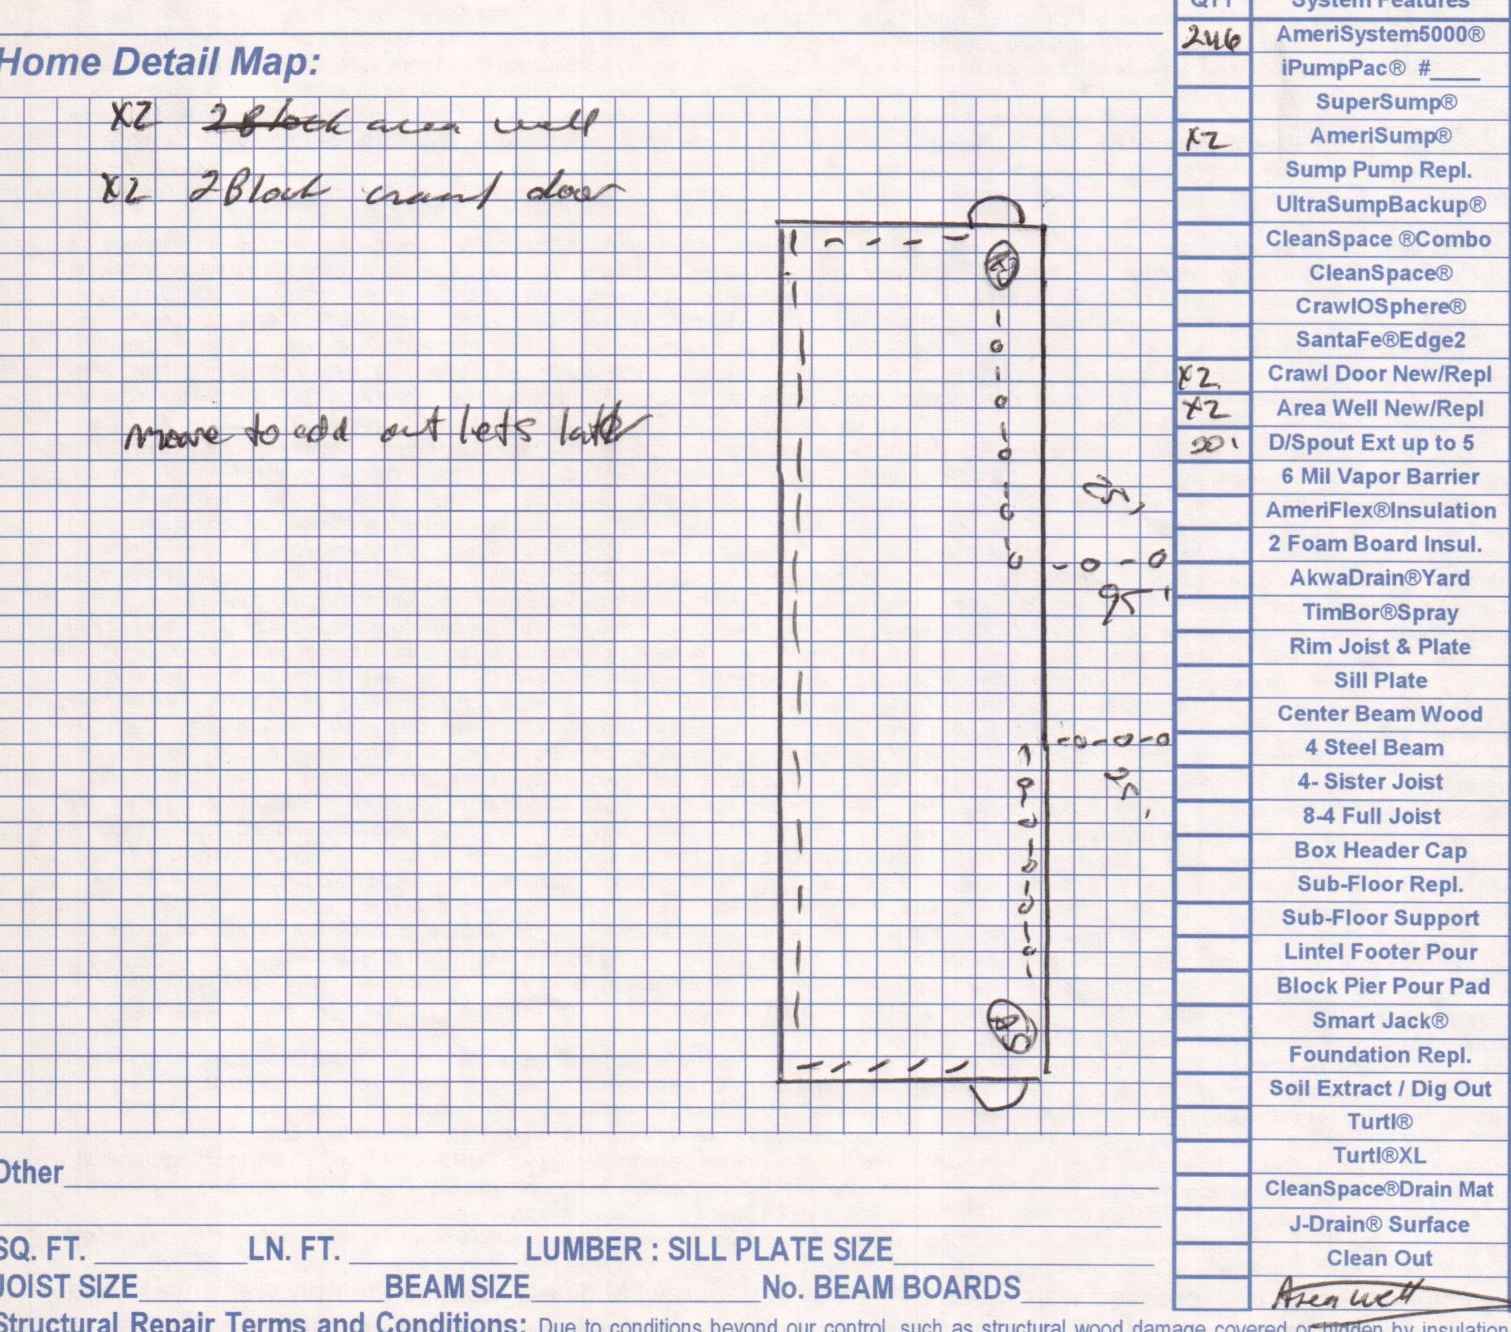 QTY System Features
246 AmeriSystem5000®
Home Detail Map:
iPumpPac® #____
X2 2 Block area well
SuperSump®
X2 AmeriSump®
Sump Pump Repl.
X2 2 Block crawl door
UltraSumpBackup®
CleanSpace ®Combo
CleanSpace®
CrawlOSphere®
SantaFe®Edge2
X2 Crawl Door New/Repl
X2 Area Well New/Repl
to add outlets later
D/Spout Ext up to 5
6 Mil Vapor Barrier
AmeriFlex®Insulation
2 Foam Board Insul.
AkwaDrain®Yard
95'
TimBor®Spray
Rim Joist & Plate
Sill Plate
Center Beam Wood
4 Steel Beam
25'
4- Sister Joist
8-4 Full Joist
Box Header Cap
Sub-Floor Repl.
Sub-Floor Support
Lintel Footer Pour
Block Pier Pour Pad
AS
Smart Jack®
Foundation Repl.
Soil Extract / Dig Out
Turtl®
Turtl®XL
Other
CleanSpace®Drain Mat
J-Drain® Surface
SQ. FT. LN. FT. LUMBER : SILL PLATE SIZE
Clean Out
JOIST SIZE BEAM SIZE No. BEAM BOARDS
Area well
Structural Repair Terms and Conditions: Due to conditions beyond our control, such as structural wood damage covered or hidden by insulation